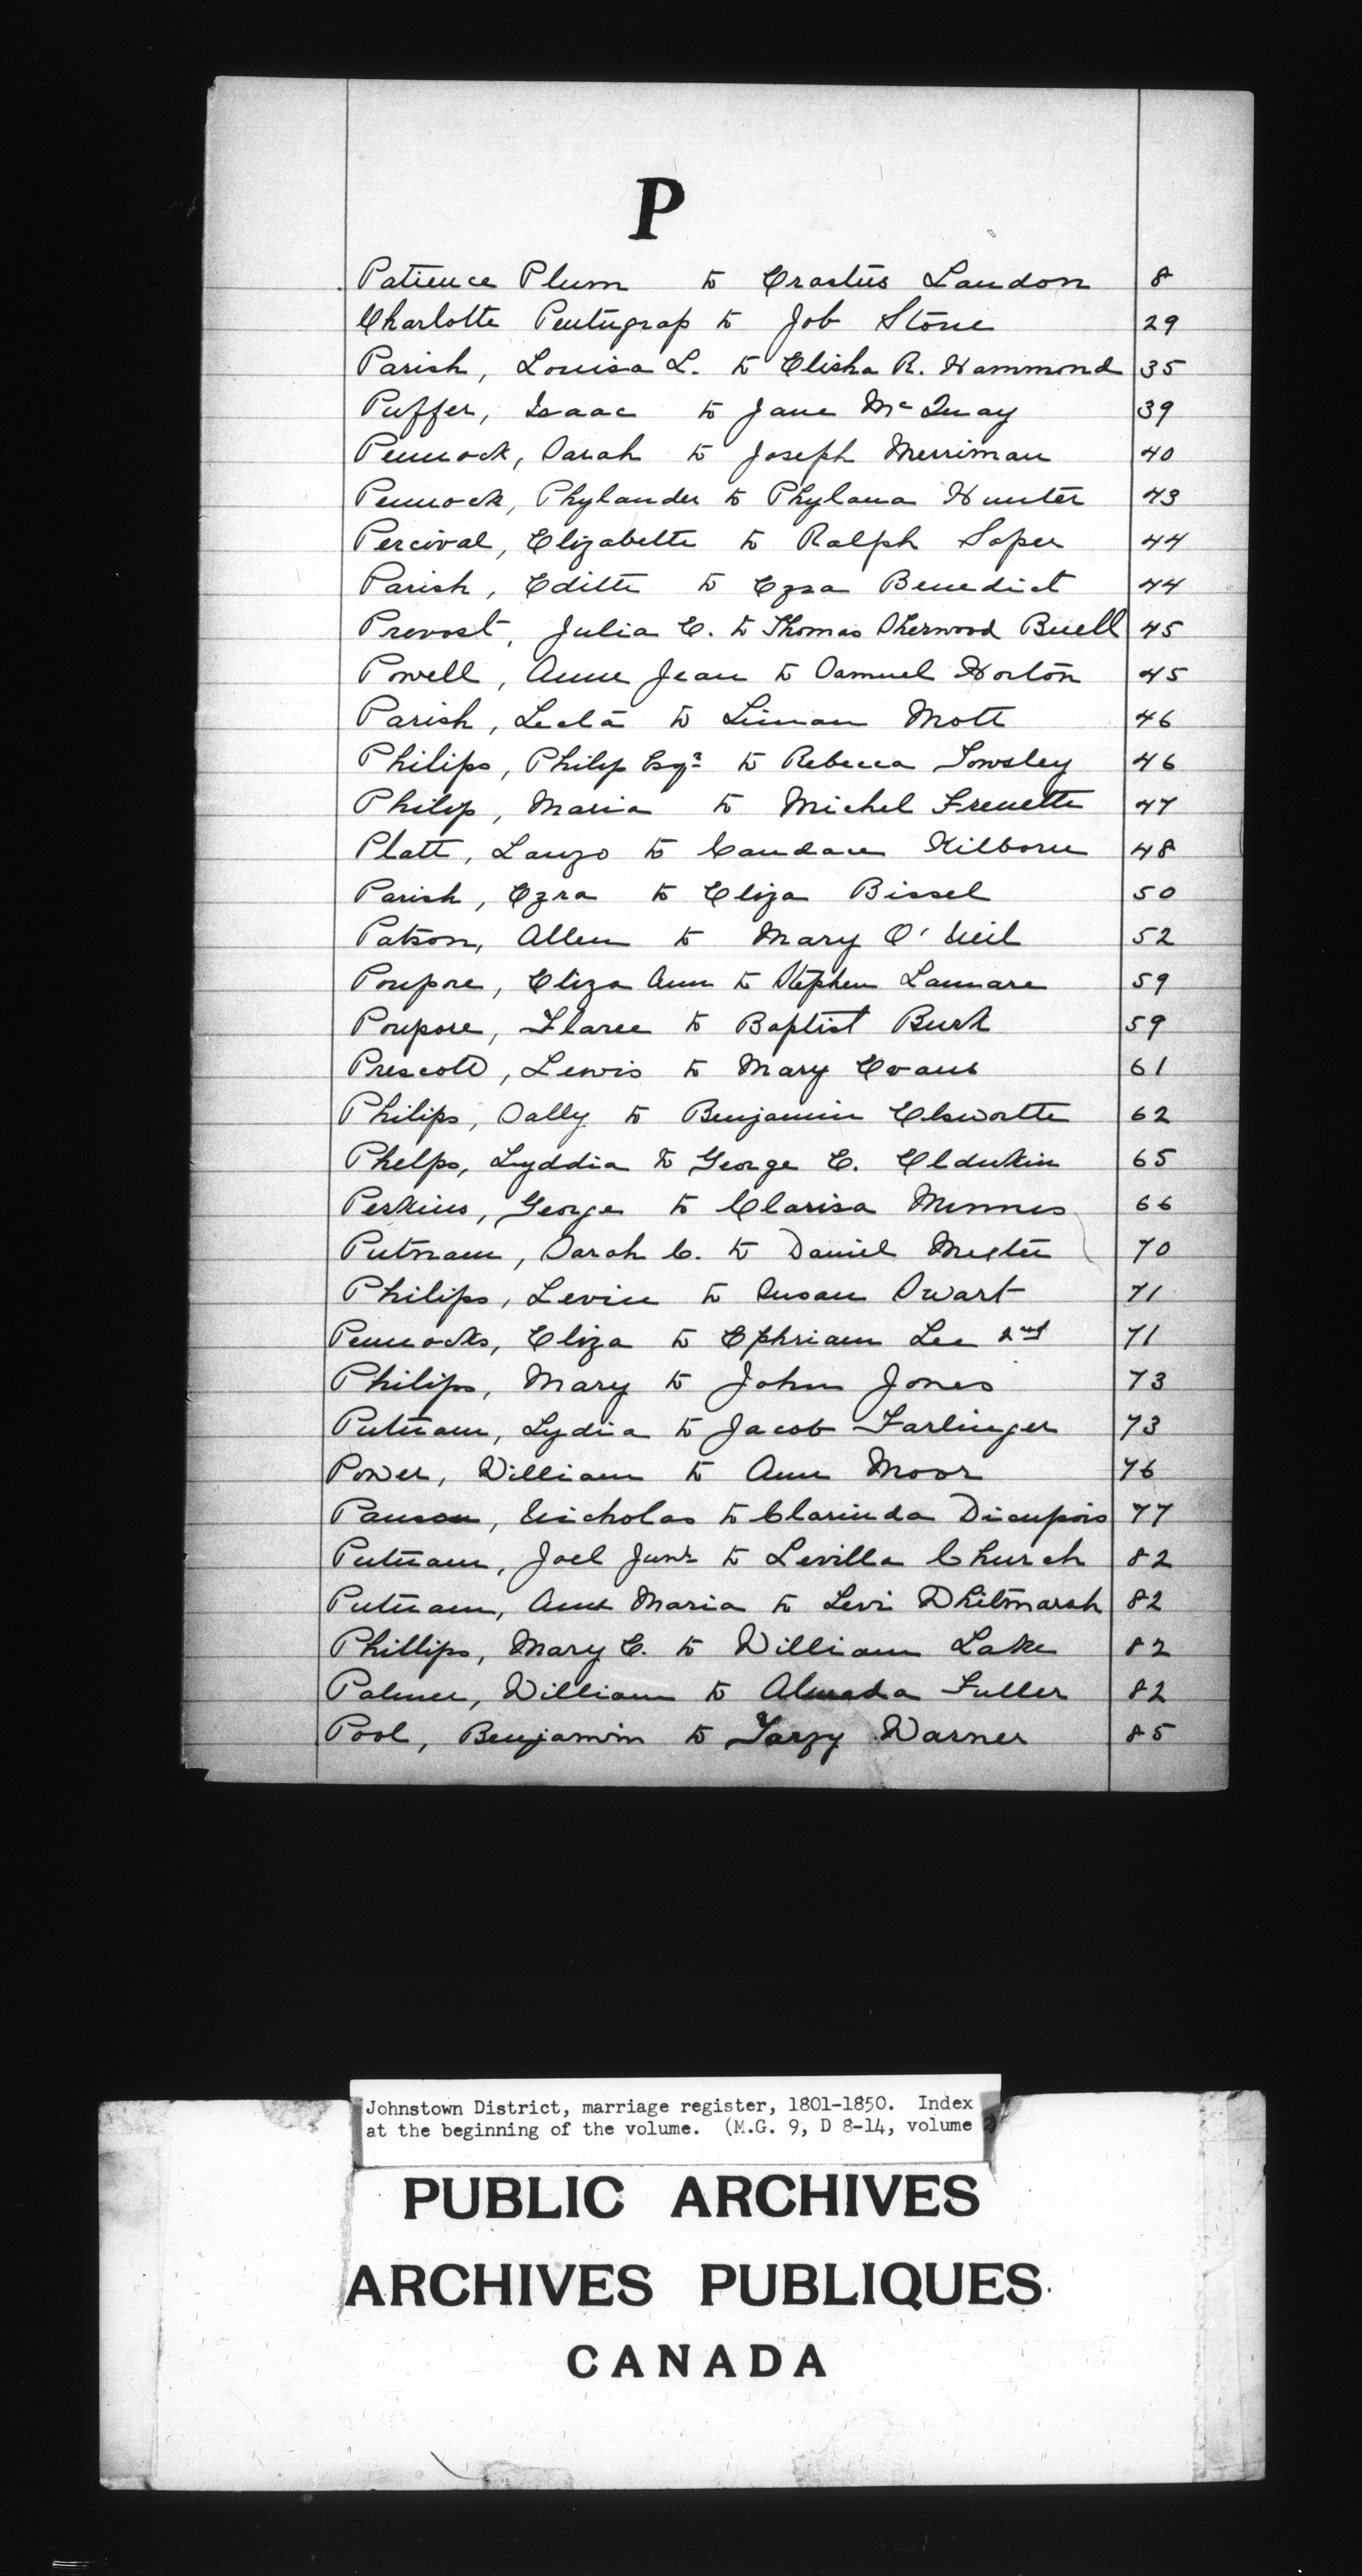 P
Patience Plum to Erastus Landon 8
Charlotte Pentugrap to Job Stone 29
Parish, Louisa L. to Elisha R. Hammond 35
Puffer, Isaac to Jane McQuay 39
Pennock, Sarah to Joseph Merriman 40
Pennock, Phylander to Phylana Hunter 43
Percival, Elizabeth to Ralph Soper 44
Parish, Edith to Ezra Benedict 44
Prevost, Julia E. to Thomas Sherwood Buell 45
Powell, Anne Jean to Samuel Horton 45
Parish, Lecta to Liman Mott 46
Philips, Philip Esqr to Rebecca Towsley 46
Philip, Maria to Michel Frenette 47
Platt, Lanzo to Candace Kilborn 48
Parish, Ezra to Eliza Bissel 50
Patson, Allen to Mary O'Neil 52
Poupore, Eliza Ann to Stephen Lamare 59
Poupore, Flaree to Baptist Burk 59
Prescott, Lewis to Mary Evans 61
Philips, Sally to Benjamin Elsworth 62
Phelps, Lyddia to George E. 65
Perkins, George to Clarisa 66
Putnam, Sarah C. to Daniel 70
Philips, Levin to Susan Swart 71
Pennocks, Eliza to Ephriam Lee 2nd 71
Philips, Mary to John Jones 73
Putnam, Lydia to Jacob Farlinger 73
Power, William to Ann Moor 76
Nicholas to Clarinda 77
Putnam, Joel Junr to Levilla Church 82
Putnam, Ann Maria to Levi Whitmarsh 82
Phillips, Mary E. to William Lake 82
Palmer, William to Almada Fuller 82
Pool, Benjamin to Warner 85
Johnstown District, marriage register, 1801-1850. Index
at the beginning of the volume. (M.G. 9, D 8-14, volume 2)
PUBLIC ARCHIVES
ARCHIVES PUBLIQUES
CANADA